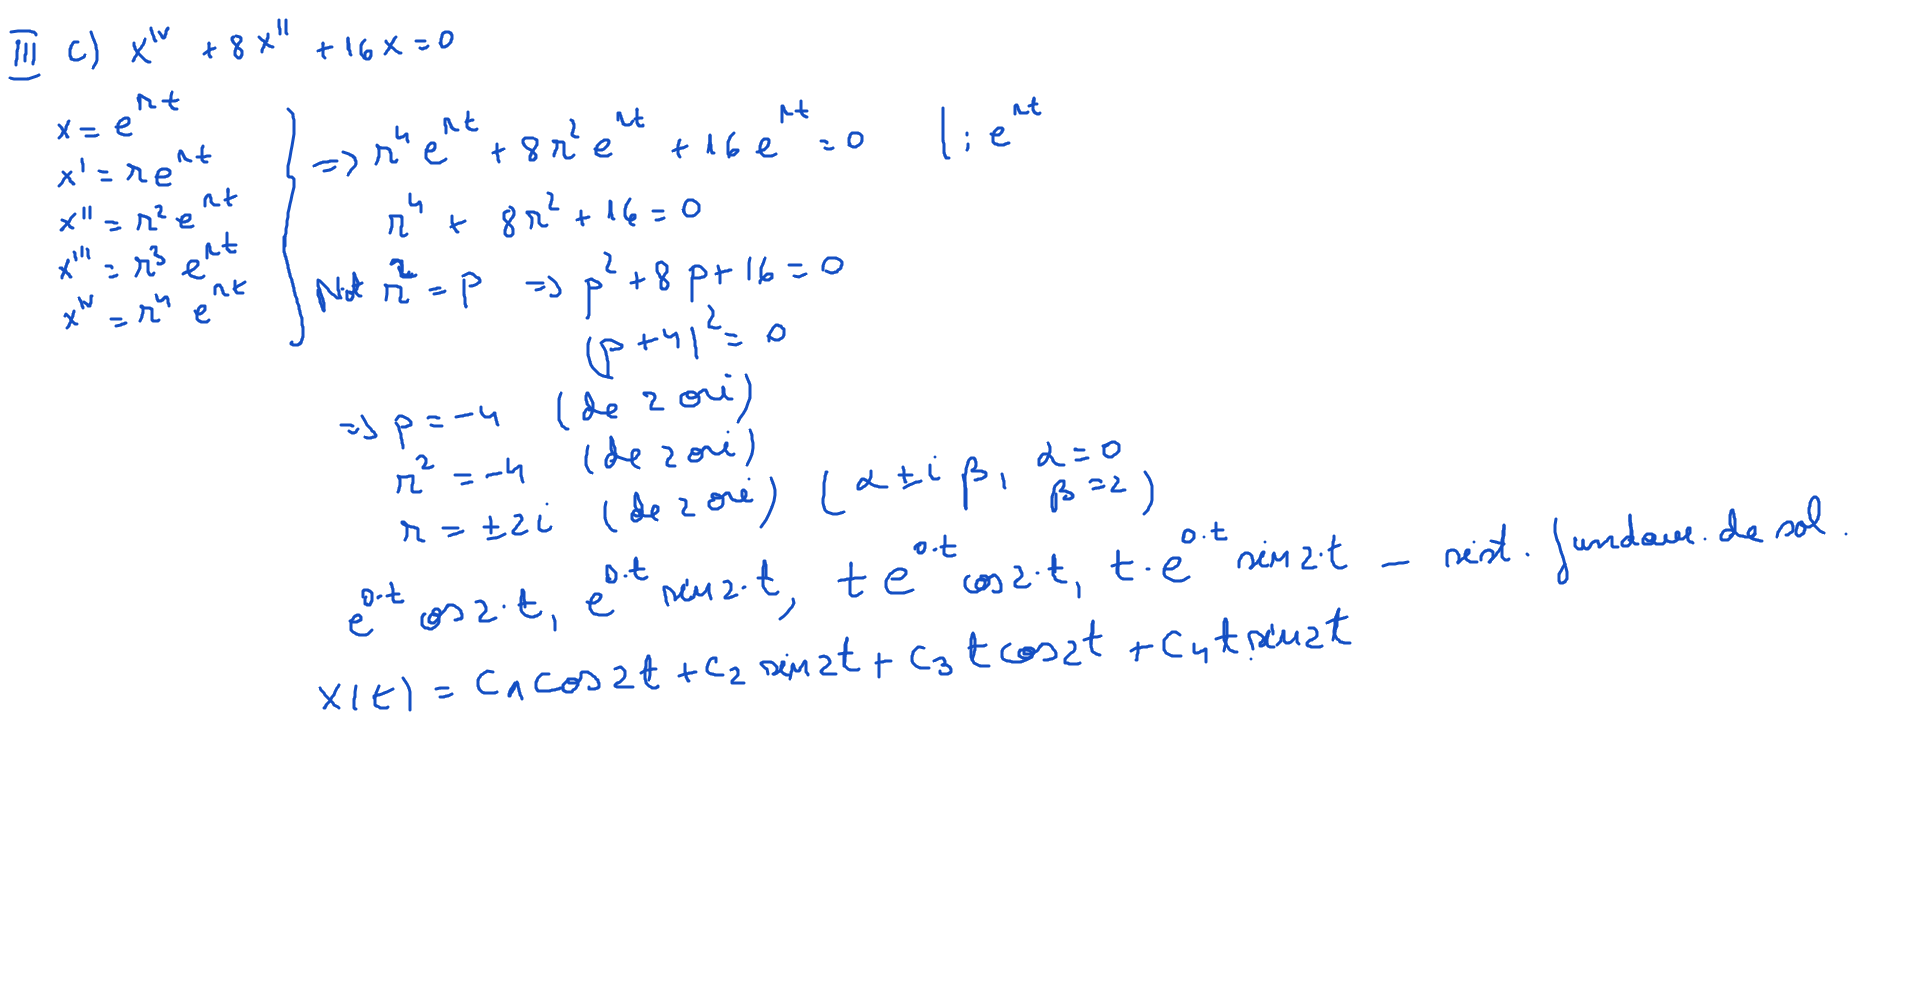 III c) x^IV + 8x'' + 16x = 0
x = e^rt
x' = re^rt
x'' = r^2 e^rt
x''' = r^3 e^rt
x^IV = r^4 e^rt
=> r^4 e^rt + 8r^2 e^rt + 16 e^rt = 0 | : e^rt
r^4 + 8r^2 + 16 = 0
Not r^2 = p => p^2 + 8p + 16 = 0
(p + 4)^2 = 0
=> p = -4 (de 2 ori)
r^2 = -4 (de 2 ori)
r = ±2i (de 2 ori) (α ± iβ, α = 0 β = 2)
e^0·t cos 2·t, e^0·t sin 2·t, t e^0·t cos 2·t, t·e^0·t sin 2·t – sist. fundam. de sol.
x(t) = c1 cos 2t + c2 sin 2t + c3 t cos 2t + c4 t sin 2t